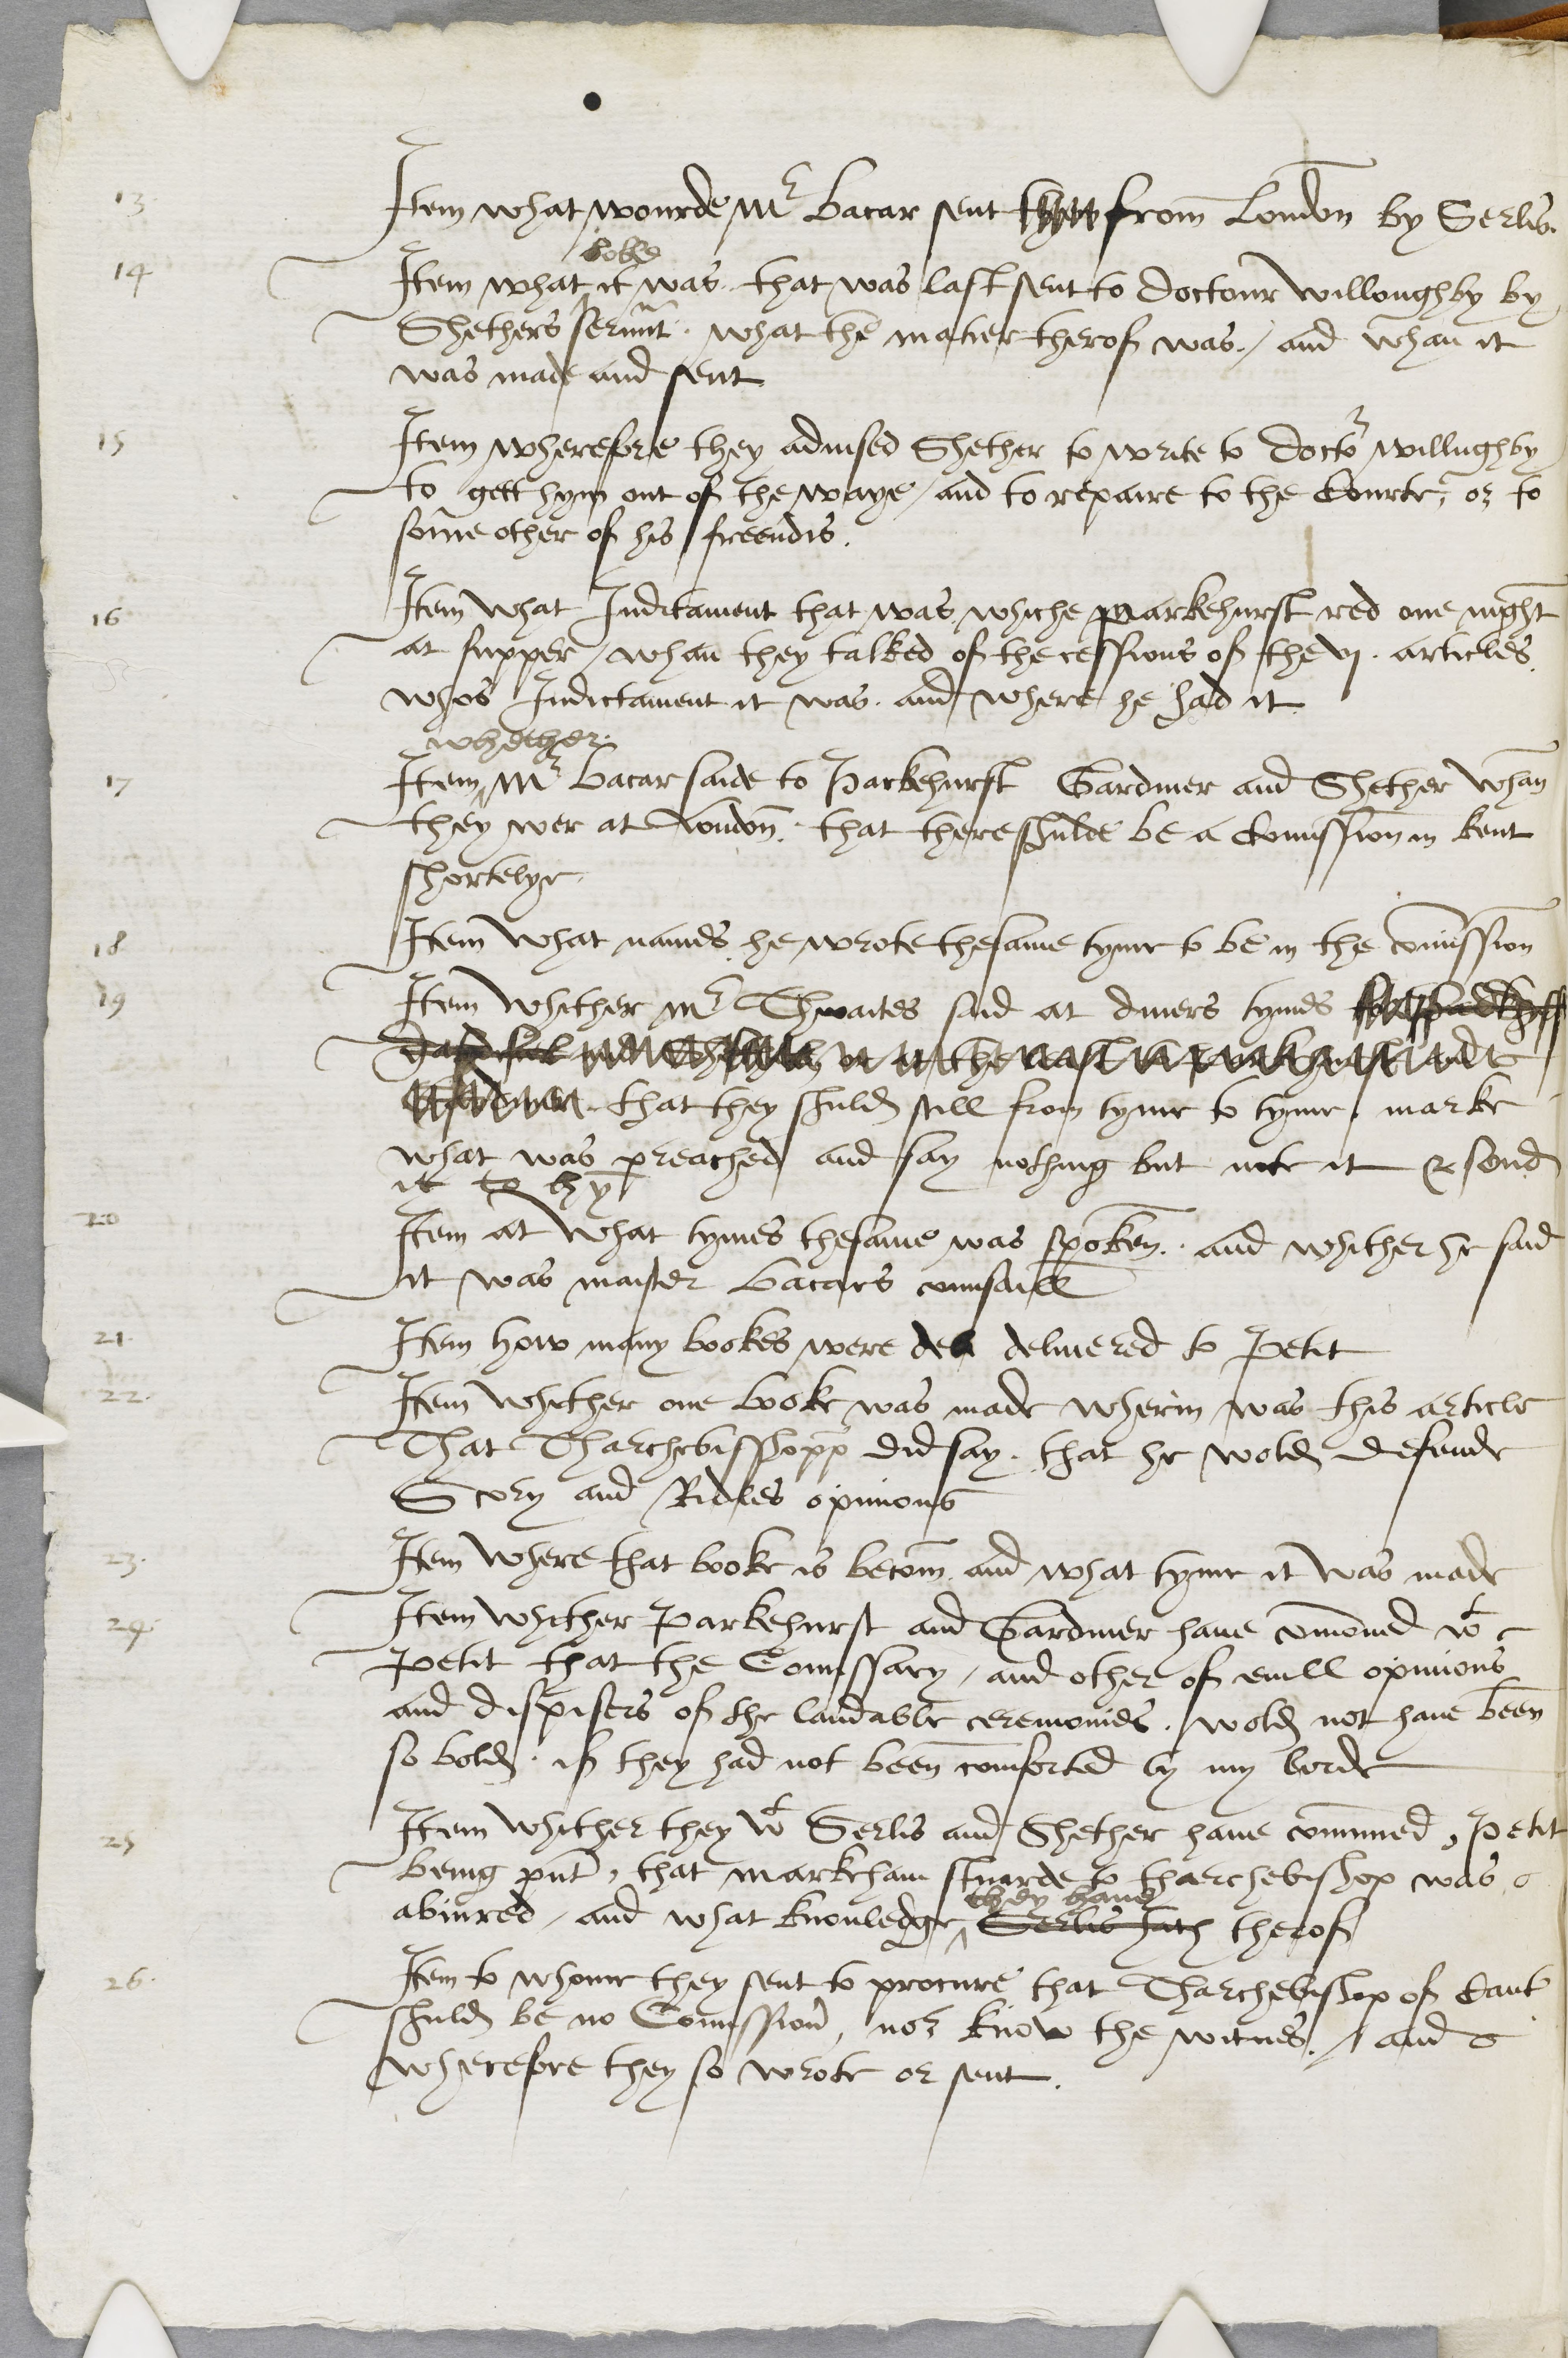 13 Item what wourde Mr Bacar sent from London by Serlis.
boke
14 Item what it was that was last sent to doctour willoughby by
Shethers seruant. what the matier therof was / and whan it
was made and sent
15 Item wherefore they aduised Shether to write to doctor willughby
to gett hym out of the waye / and to repaire to the Courte, or to
some other of his freendis.
16 Item what Inditament that was whiche parkehurst red one night
at supper / whan they talked of the cessions of the vj. articles
whos Indictament it was. and where he had it
whether
17 Item Mr Bacar saide to Parkehurst Gardiner and Shether whan
they wer at London. that there shulde be a Comission in kent
shortelye
18 Item what names he wrote thesame tyme to be in the comission
19 Item whither Mr Thwaites said at diuers tymes
that they shuld still from tyme to tyme marke
what was preached and say nothing but note it & send
it to hym
20 Item at what tymes thesame was spoken. and whither he said
it was maister Bacars counsaill
21. Item how many bookes were del deliuered to Petit
22. Item whither one booke was made wherin was this article
That Tharchebisshopp did say. that he wold defende
Scory and Ridles opinions
23. Item where that booke is becom and what tyme it was made
24. Item whither Parkehurst and Gardiner haue comoned wt
Petit that the Comissary / and other of euill opinions
and dispisers of the laudable ceremonies. wold not haue been
so bold. if they had not been comforted by my lorde
25 Item whither they wt Serlis and Shether haue commned, Petit
being pnt, that markeham stuarde to tharchebishop was
abiured / and what knouledge Serlis hath therof
they haue
26. Item to whome they sent to procure that Tharchebishop of Cant
shuld be no Comission, nor know the witnes / and
wherefore they so wrote or sent.